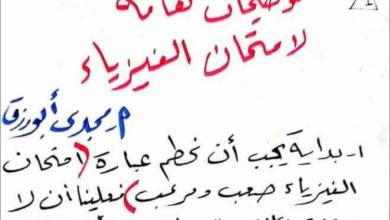 توضيحات هامة
لامتحان الفيزياء
م. مجدى أبورزق
١- بداية يجب أن نحطم عبارة (امتحان
الفيزياء صعب ومرعب) فعلينا أن لا